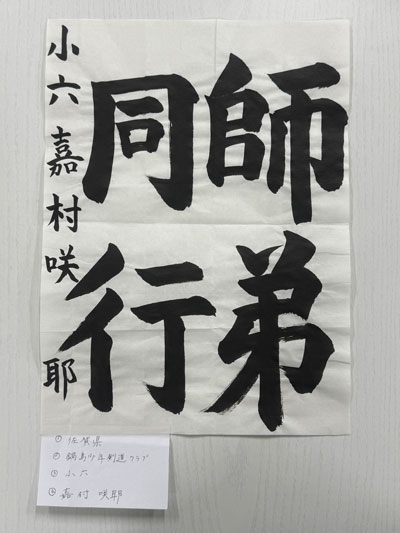 師弟
同行
小六 嘉村咲耶
①佐賀県
②鍋島少年剣道クラブ
③小六
④嘉村 咲耶